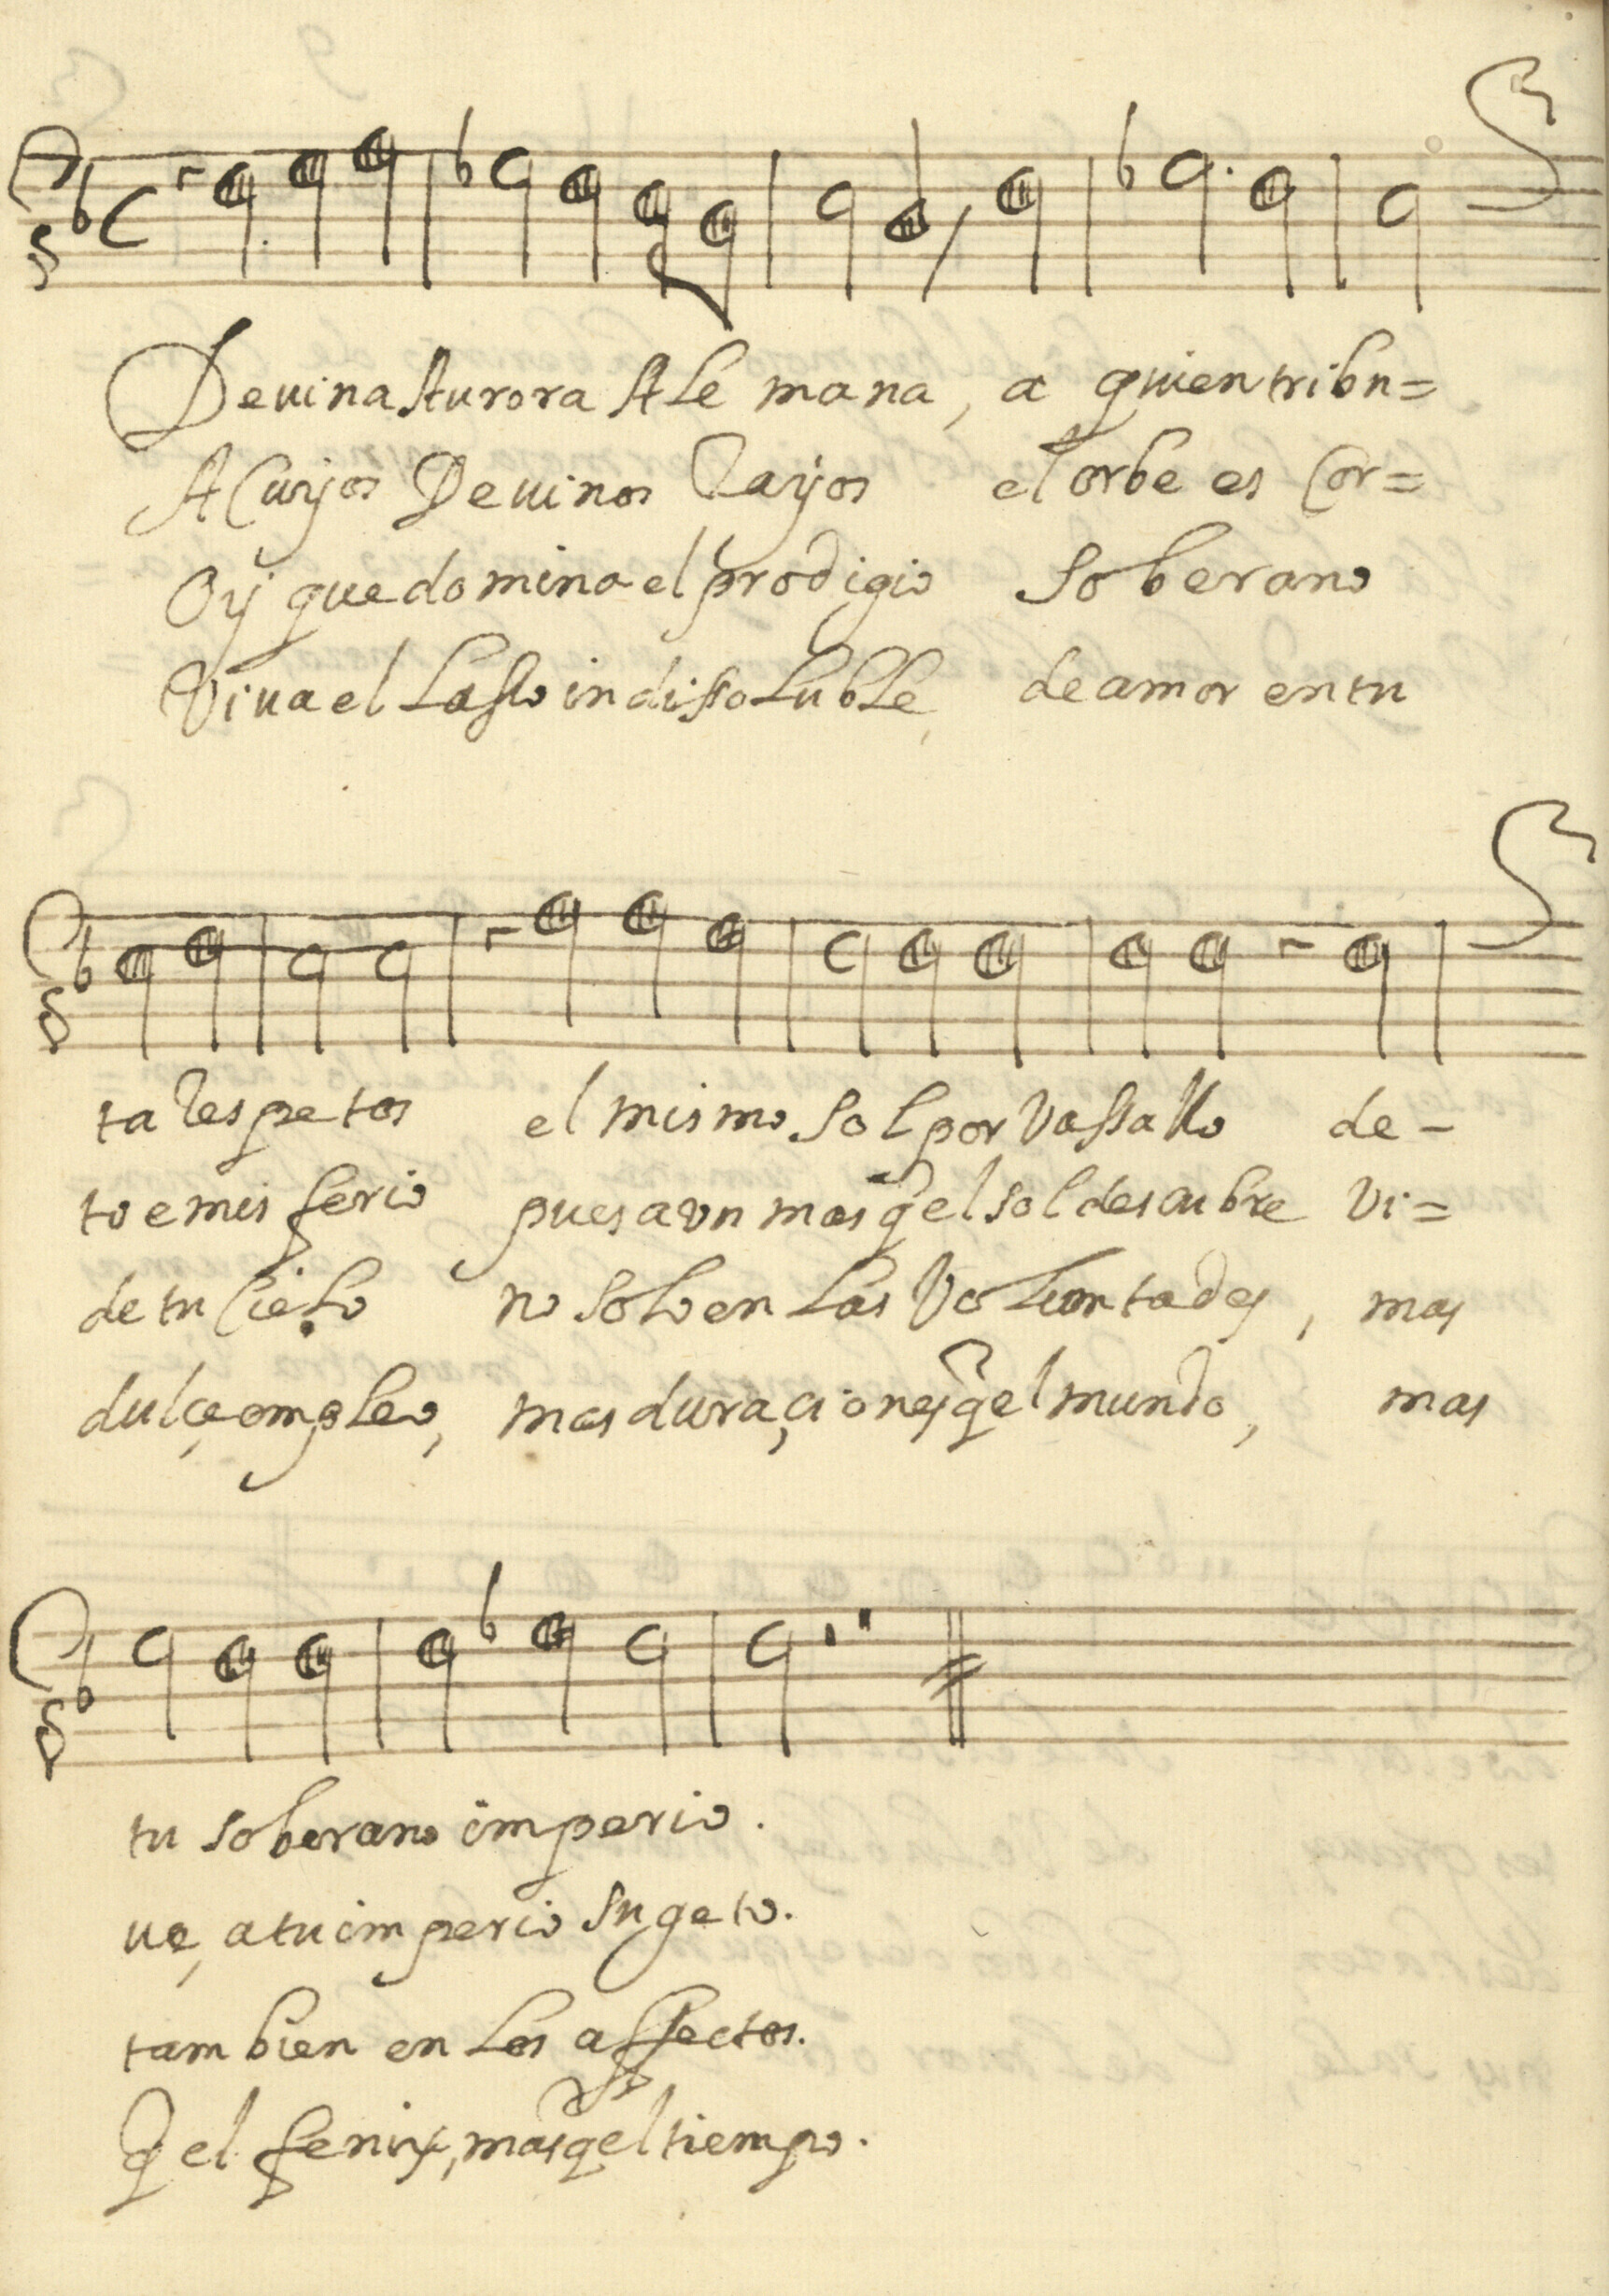 Deuina Aurora Alemana, a quien tribu=
A Cuyos Deuinos Rayos el orbe es Cor=
Oy que domina el prodigio Soberano
Viua el Lasso indissoluble, de amor en tu
ta Respetos el mismo Sol por Vassallo de-
to emisferio pues aun mas q̃ el sol descubre Vi=
de tu Cielo no Solo en Las Voluntades, mas
dulçe empleo, mas duraçiones q̃ el mundo, mas
tu soberano imperio.
ue, a tu imperio Sugeto.
tambien en Los affectos.
Q̃ el fenix, mas q̃ el tiempo.